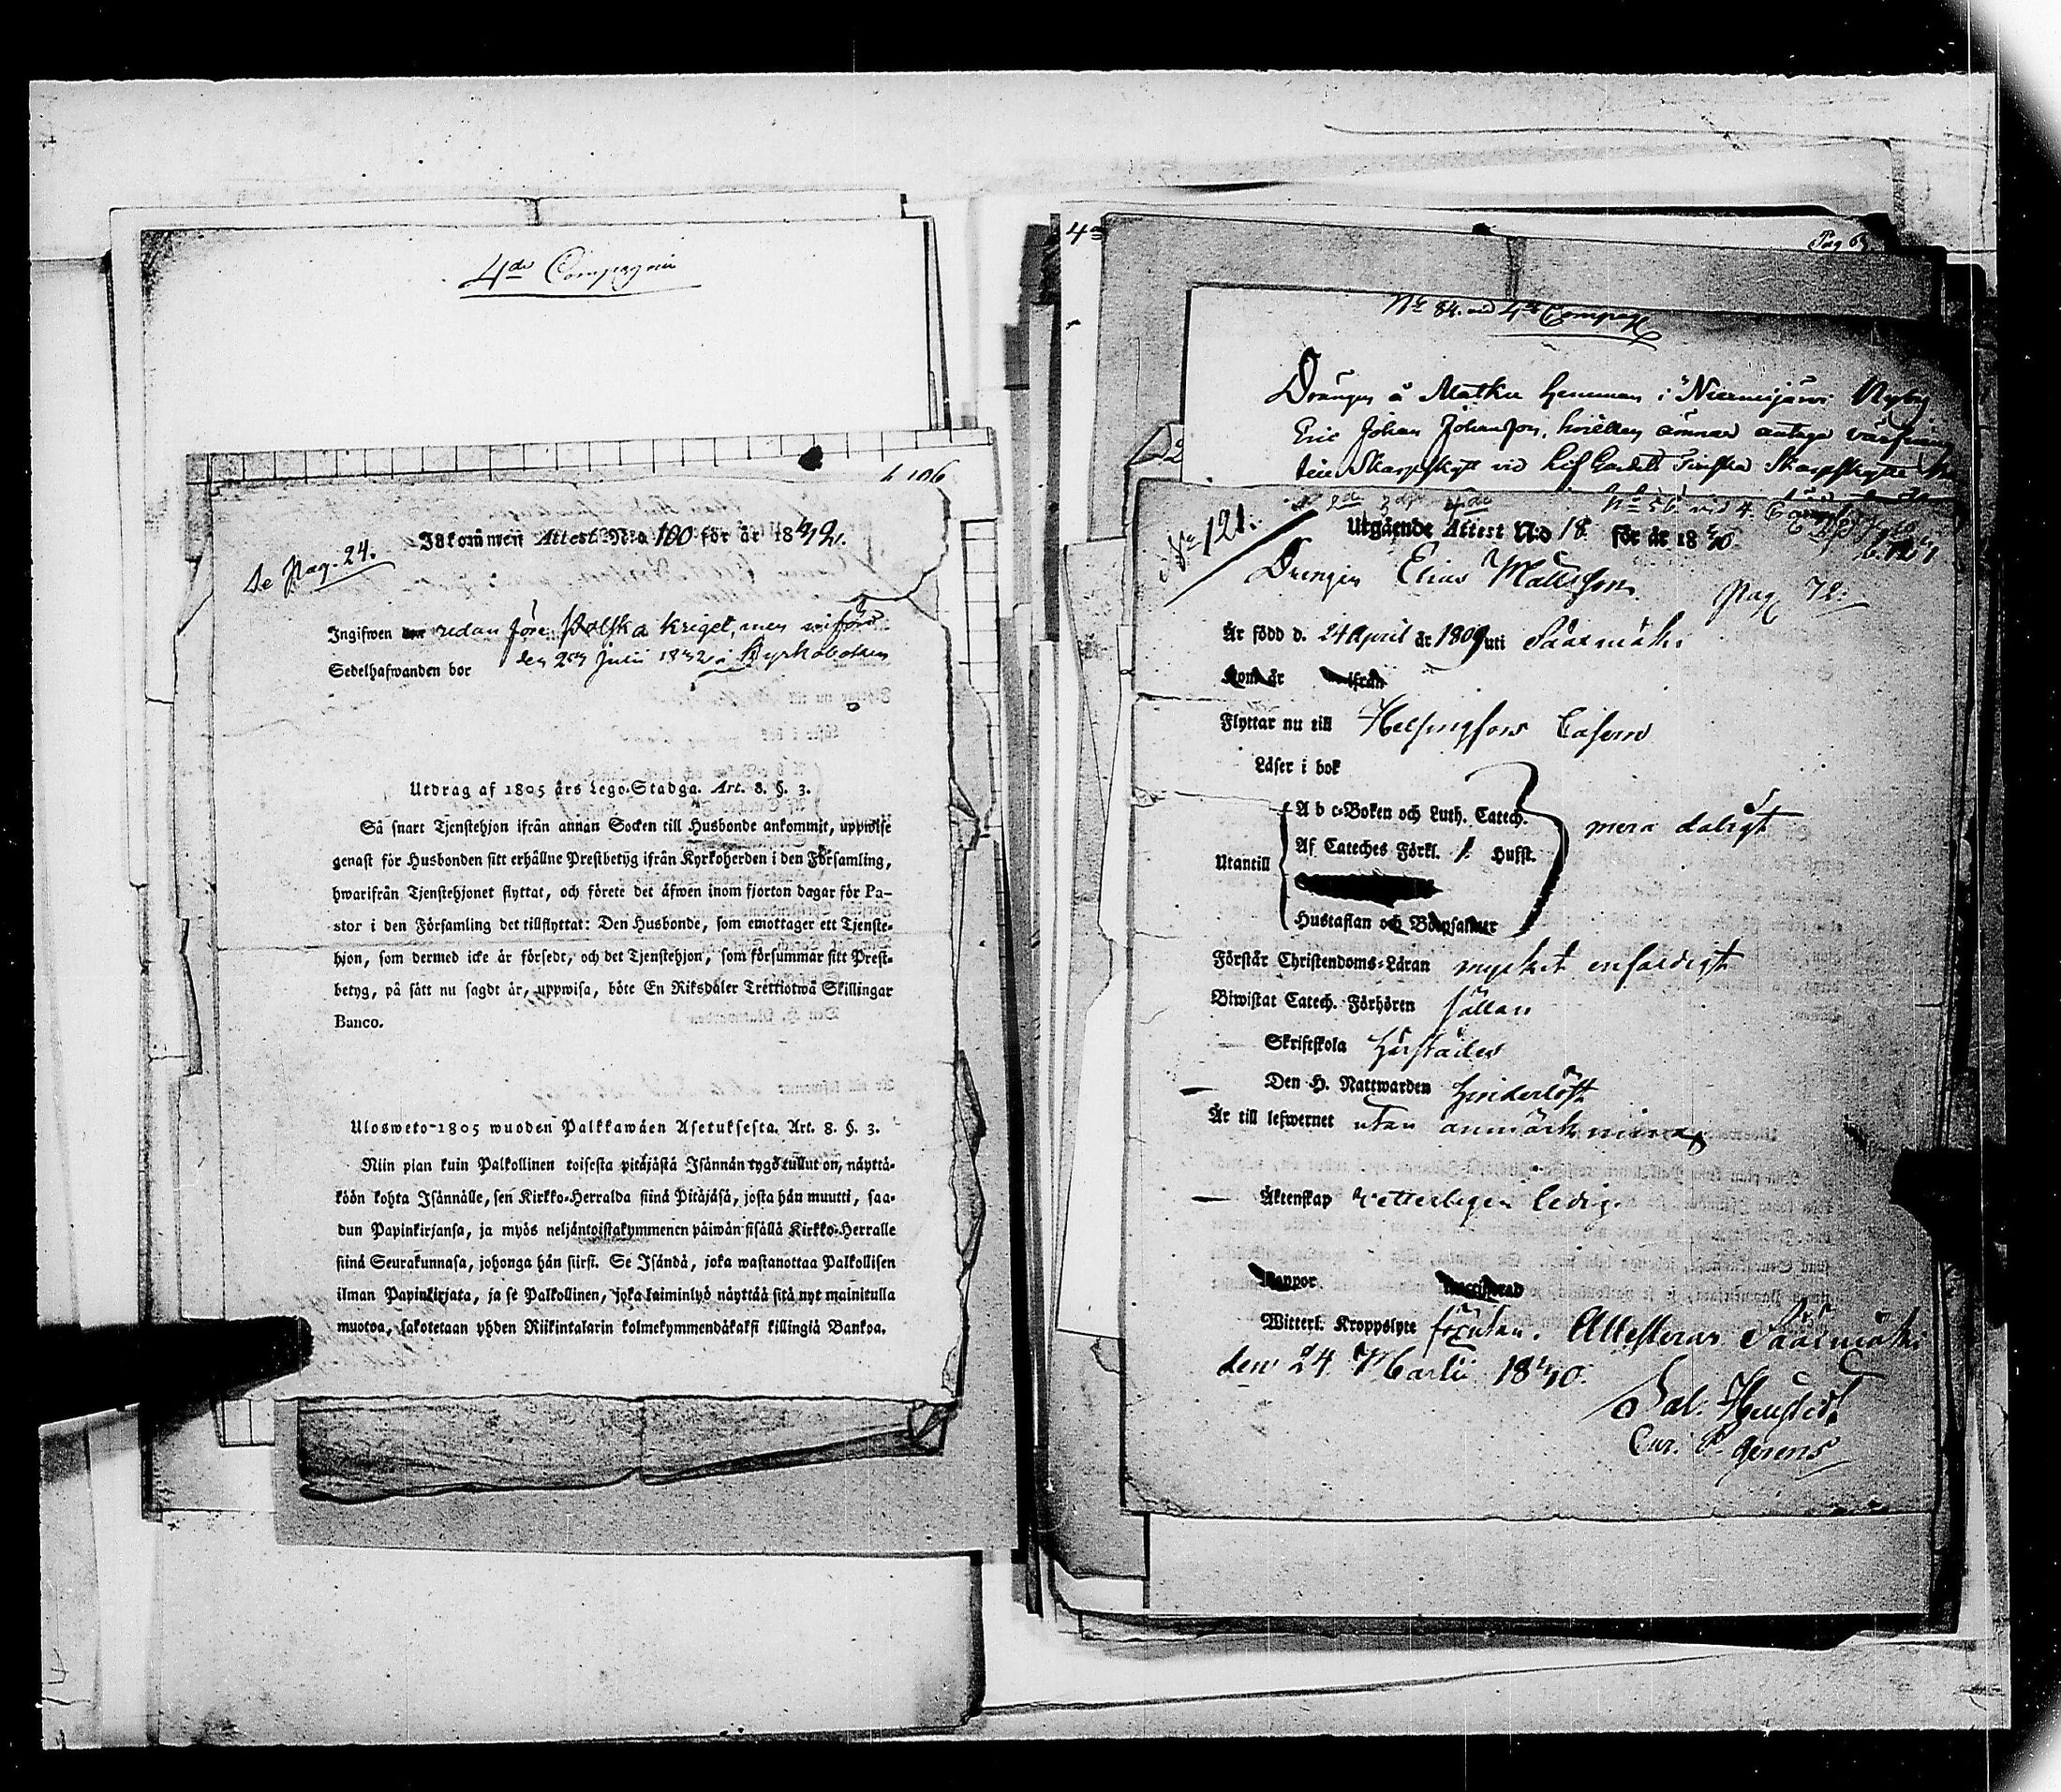 4de Compagnie
h 106
Inkommen Attest N:o 100 för år 1842.
Se Pag. 24.
Ingifwen redan före Polska kriget, men införd
den 2 Julii 1842 i Kyrkoboken
Sedelhafwanden bor
Utdrag af 1805 års Lego-Stadga. Art. 8. §. 3.
Så snart Tjenstehjon ifrån annan Socken till Husbonde ankommit, uppwise
genast för Husbonden sitt erhållne Prestbetyg ifrån Kyrkoherden i den Församling,
hwarifrån Tjenstehjonet flyttat, och förete det äfwen inom fjorton dagar för Pa-
stor i den Församling det tillflyttat: Den Husbonde, som emottager ett Tjenste-
hjon, som dermed icke är försedt, och det Tjenstehjon, som försummar sitt Prest-
betyg, på sätt nu sagdt är, uppwisa, böte En Riksdaler Trettiotwå Skillingar
Banco.
Ulosweto 1805 wuoden Palkkawäen Asetuksesta. Art. 8. §. 3.
Niin pian kuin Palkollinen toisesta pitäjästä Isännän tygö tullut on, näyttä-
köön kohta Isännälle, sen Kirkko-Herralda siinä Pitäjäsä, josta hän muutti, saa-
dun Papinkirjansa, ja myös neljäntoistakymmenen päiwän sisällä Kirkko-Herralle
siinä Seurakunnasa, johonga hän siirsi. Se Isändä, joka wastanottaa Palkollisen
ilman Papinkirjata, ja se Palkollinen, joka laiminlyö näyttää sitä nyt mainitulla
muotoa, sakotetaan yhden Riikintalarin kolmekymmendäkaksi killingiä Bankoa.
4de
Pag 6
N:o 84. vid 4de Compag
Drängen å Matku hemman i Niemijärvi
Eric Johan Johansson, hvilken ämnar antaga värfning
Skarpskytt vid Lif Gardets Finska Skarpskytte
N:o 56 vid 4. Comp
N:o 121.
Utgående Attest N:o 18 för år 1840
Drengen Elias Mattsson
Pag 72.
Är född d. 24 April år 1809 uti Sääxmäki
Kom år ifrån
Flyttar nu till Helsingfors Casern
Läser i bok
A b c-Boken och Luth. Catech.
mera dåligt
Af Cateches Förkl. 1. Hufst.
Utantill
Hustaflan och Botpsalmer
Förstår Christendoms-Läran mycket enfaldigt
Biwistat Catech. Förhören sällan
— Skriftskola härstädes
— Den H. Nattwarden hinderlöst
Är till lefwernet utan anmärkning
— Äktenskap vetterligen ledig.
Koppor
Witterl. Kroppslyte förutan. Attesteras Sääxmäki
den 24 Martii 1840.
Sal:
Cur. P gerens